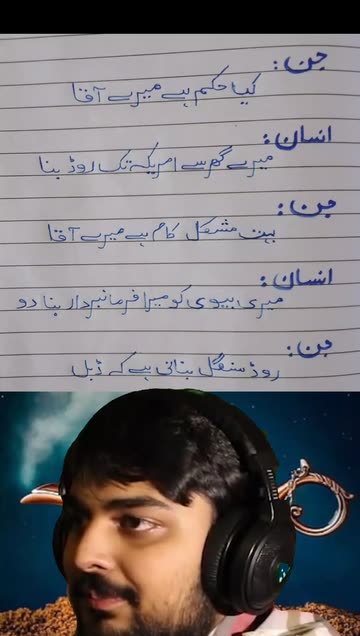 جن:
کیا حکم ہے میرے آقا
انسان:
میرے گھر سے امریکہ تک روڈ بنا
جن:
بہت مشکل کام ہے میرے آقا
انسان:
میری بیوی کو میرا فرمانبردار بنا دو
جن:
روڈ سنگل بنانی ہے کہ ڈبل